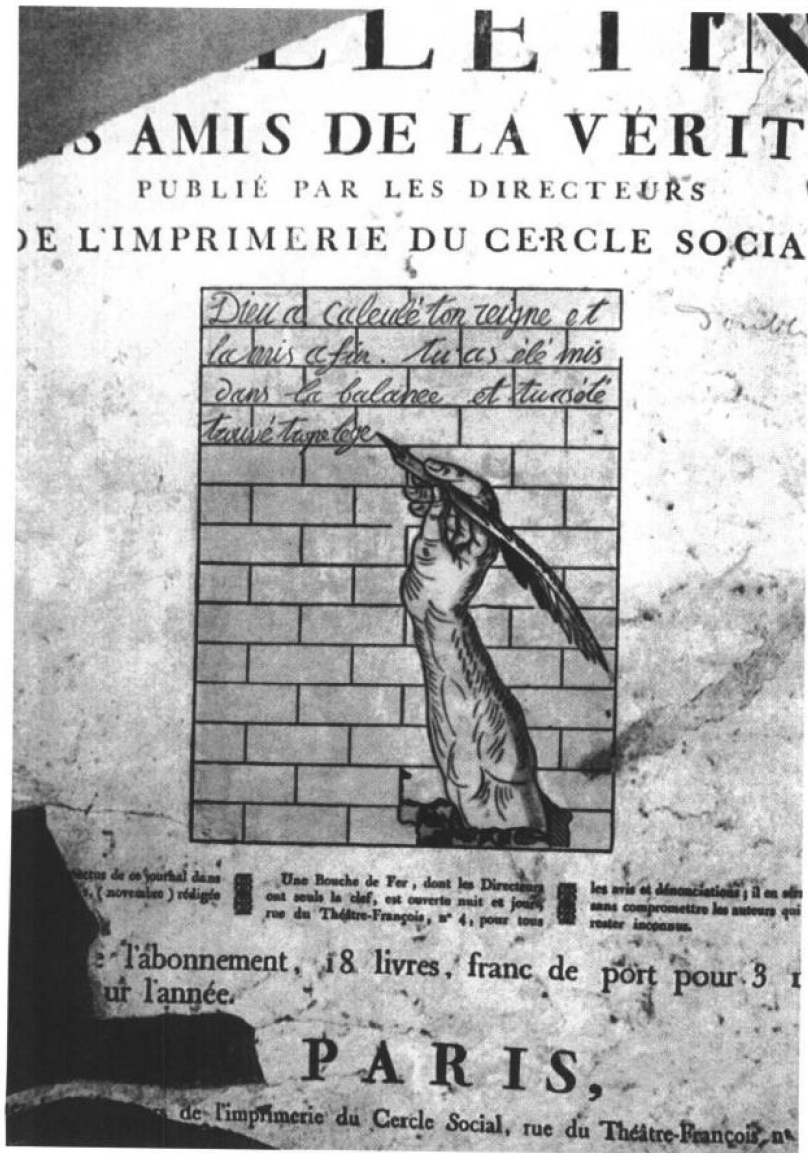 LLETIN
S AMIS DE LA VÉRIT
PUBLIÉ PAR LES DIRECTEURS
DE L'IMPRIMERIE DU CERCLE SOCIA
Dieu a calculé ton reigne et
la mis a fin. tu as été mis
dans la balance et tu as été
trouvé trope lege
ectus de ce journal dans
(novembre) rédigée
Une Bouche de Fer, dont les Directeurs
ont seuls la clef, est ouverte nuit et jour,
rue du Théâtre-François, n° 4, pour tous
les avis et dénonciations; il en
sans compromettre les auteurs qui
rester inconnus.
l'abonnement, 18 livres, franc de port pour 3
ur l'année.
PARIS,
de l'imprimerie du Cercle Social, rue du Théâtre-François, n°